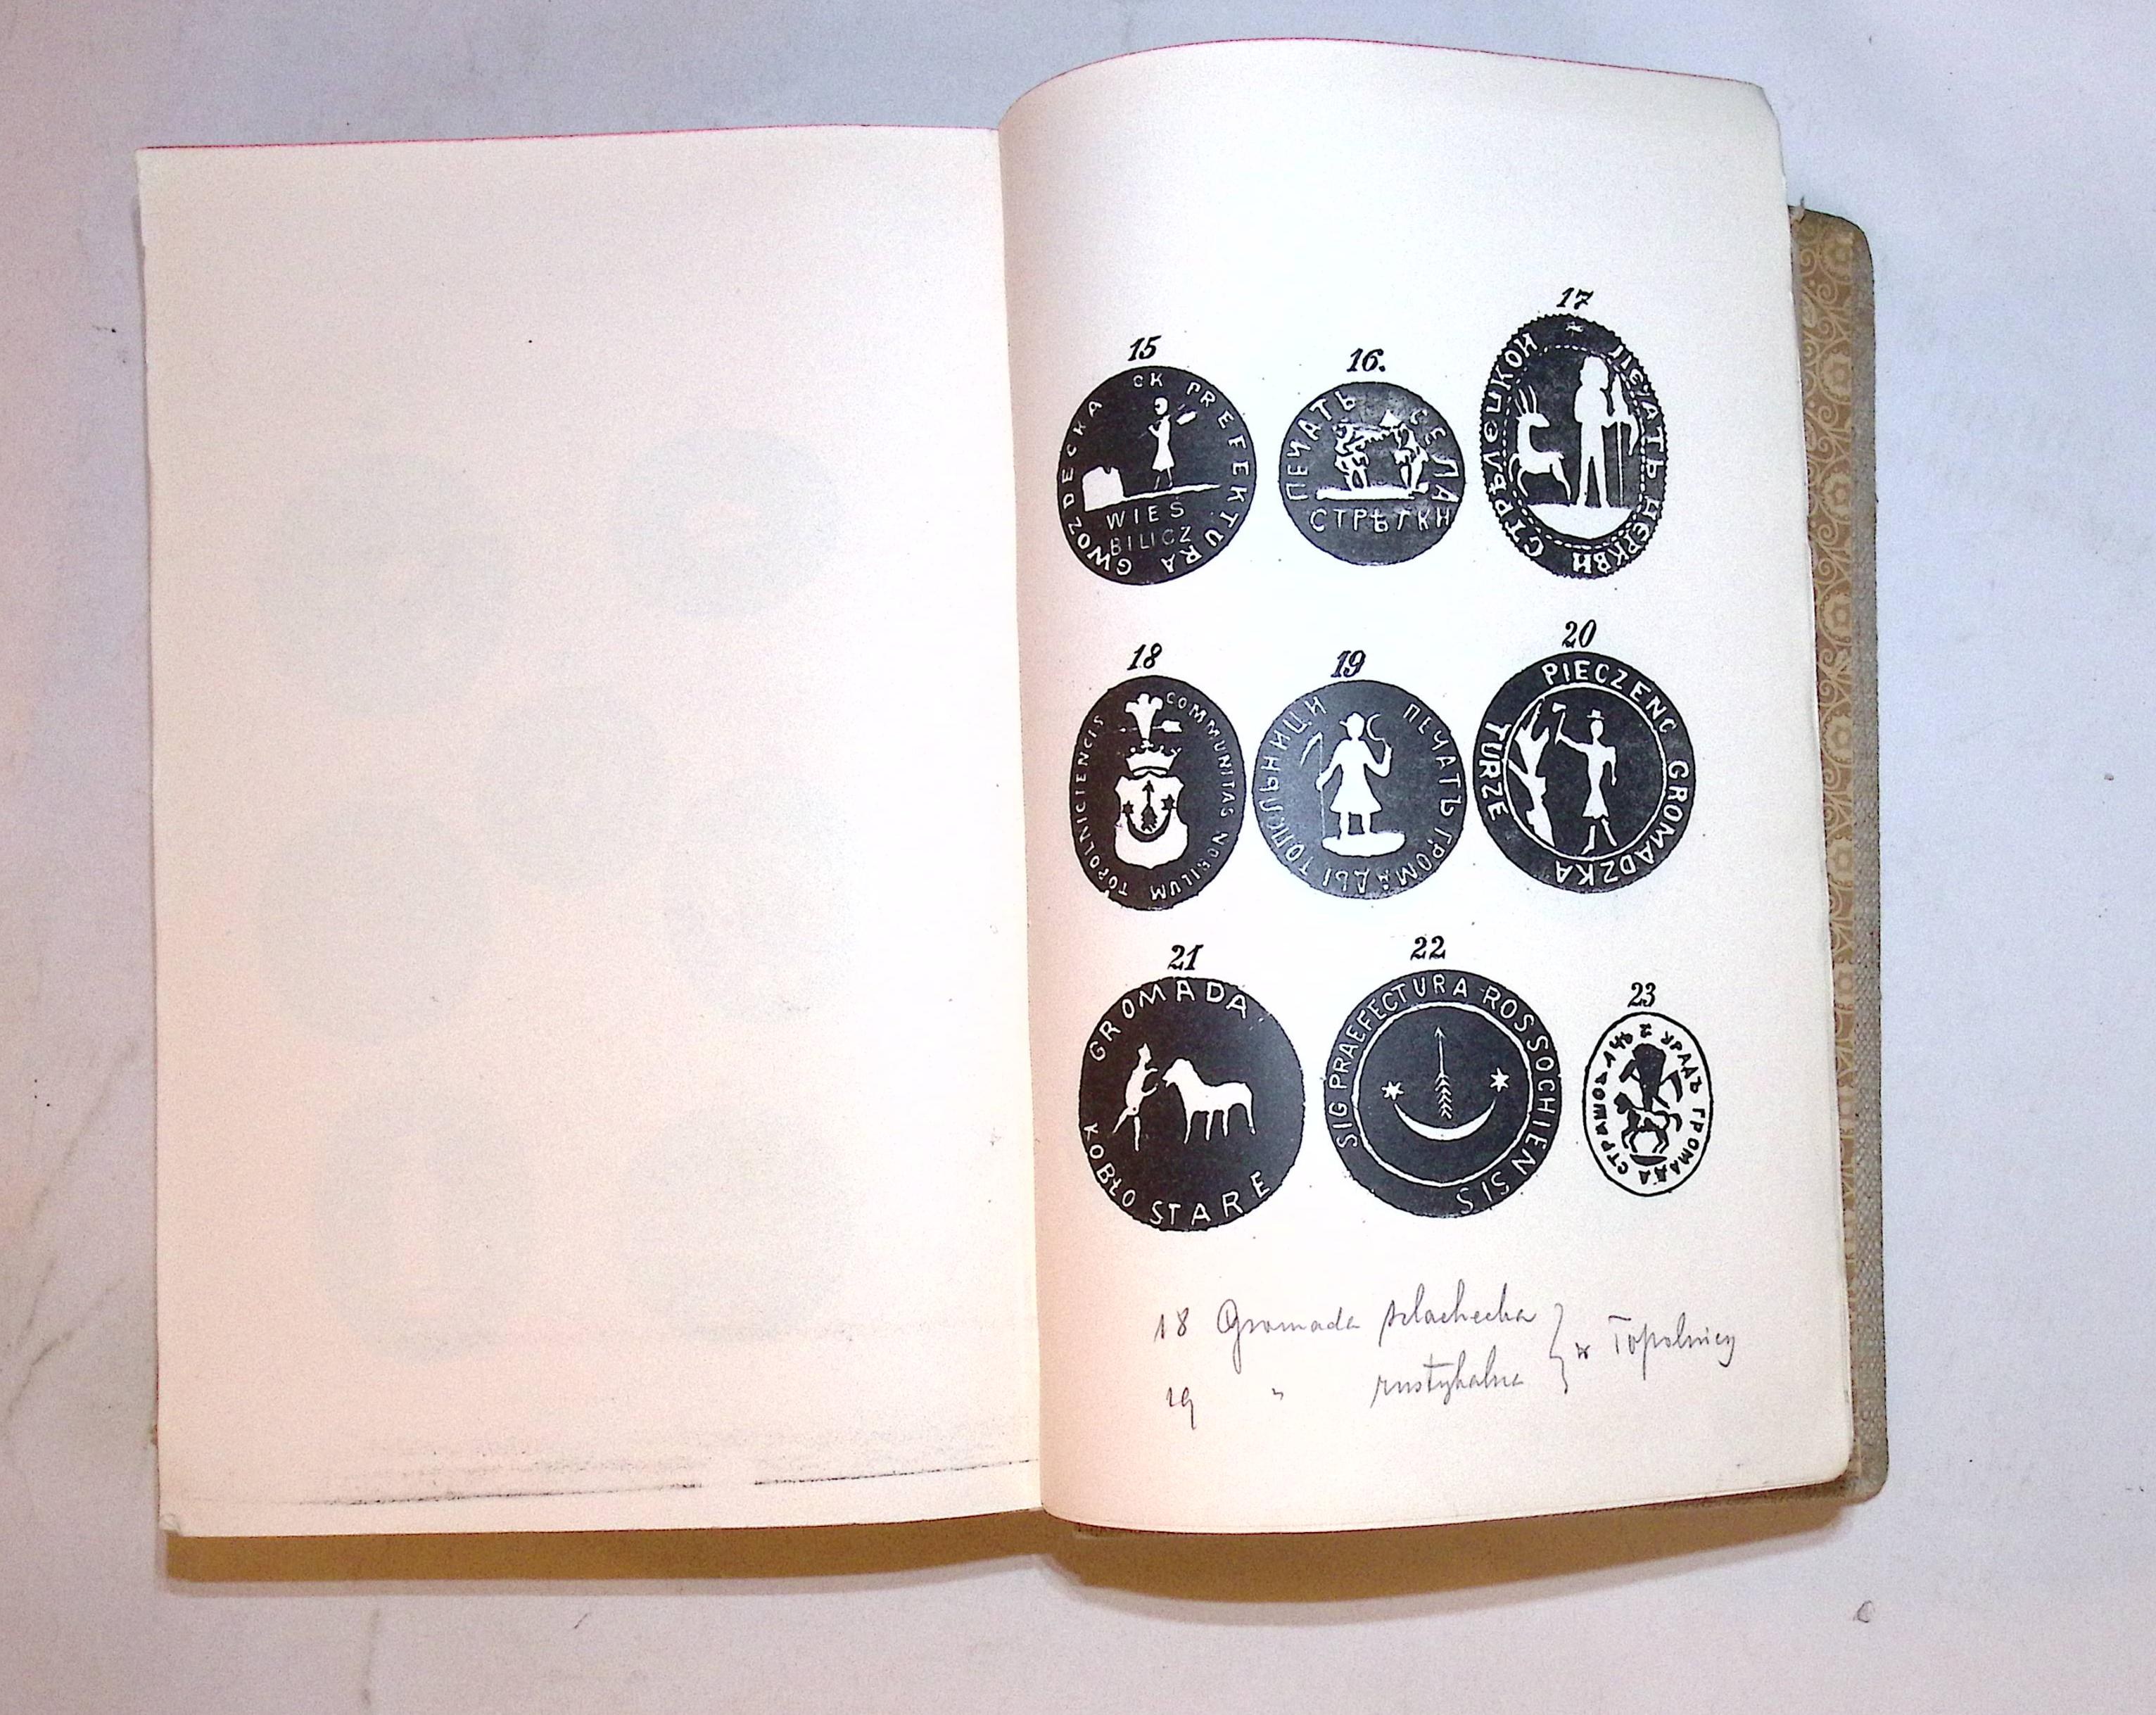 15
CK PREFEKTURA GWOZDECKA
WIES
BILICZ
16.
ПЕЧАТЬ СЕЛА
СТРѢТКН
17
ПЕЧАТЬ ЦЕРКВИ СТРѢЛЕЦКОИ
18
COMMUNITAS NOBILUM TOPOLNICIENCIS
19
ПЕЧАТЪ ГРОМАДЫ ТОПОЛЬНИЦИ
20
PIECZENC GROMADZKA
TURZE
21
GROMADA
KOBŁO STARE
22
SIG PRAEFECTURA ROSSOCHIENSIS
23
УРАДЪ ГРОМАДЪ
18 Gromada szlachecka
19 " rustykalna } w Topolnicy